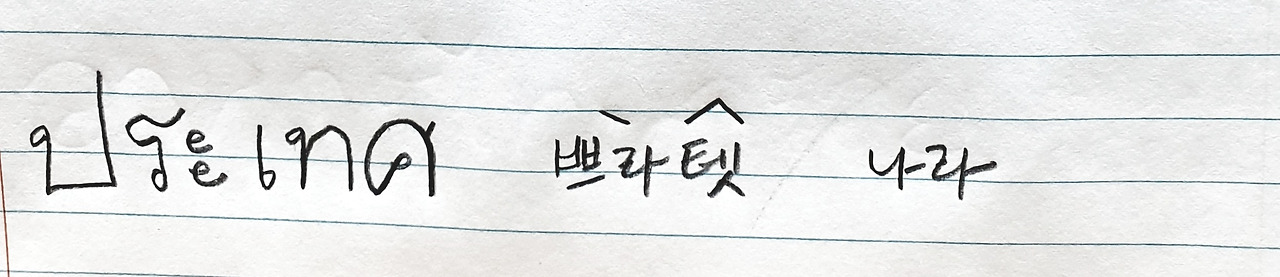 ประเทศ 쁘라̀텟̂ 나라